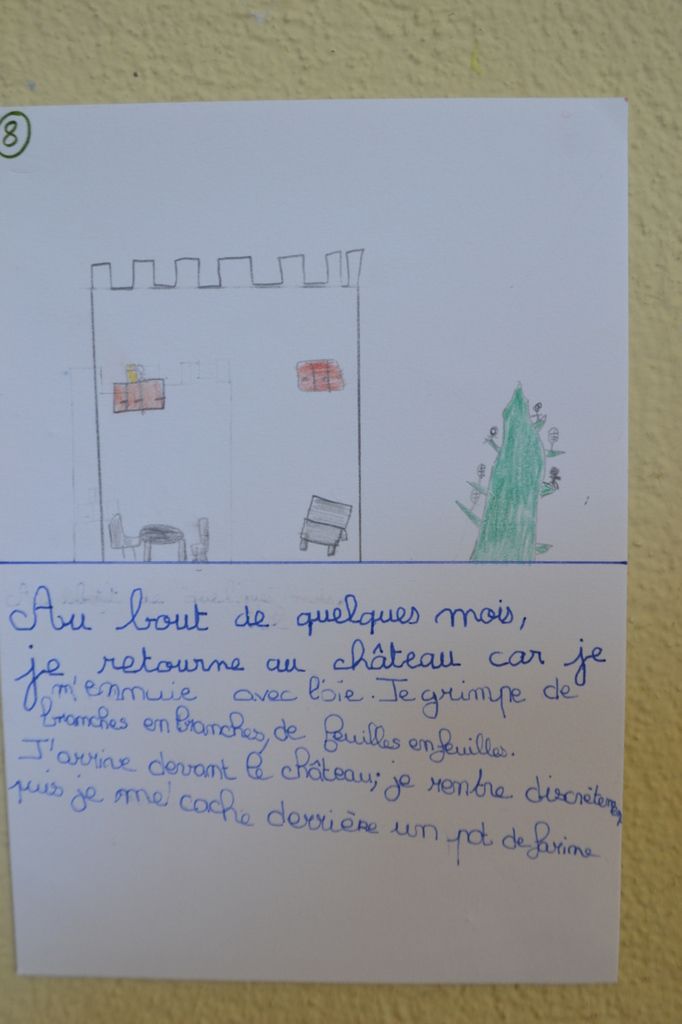 8
Au bout de quelques mois,
je retourne au château car je
m'ennuie avec l'oie. Je grimpe de
branches en branches, de feuilles en feuilles.
J'arrive devant le château; je rentre discrètement
puis je me cache derrière un pot de farine